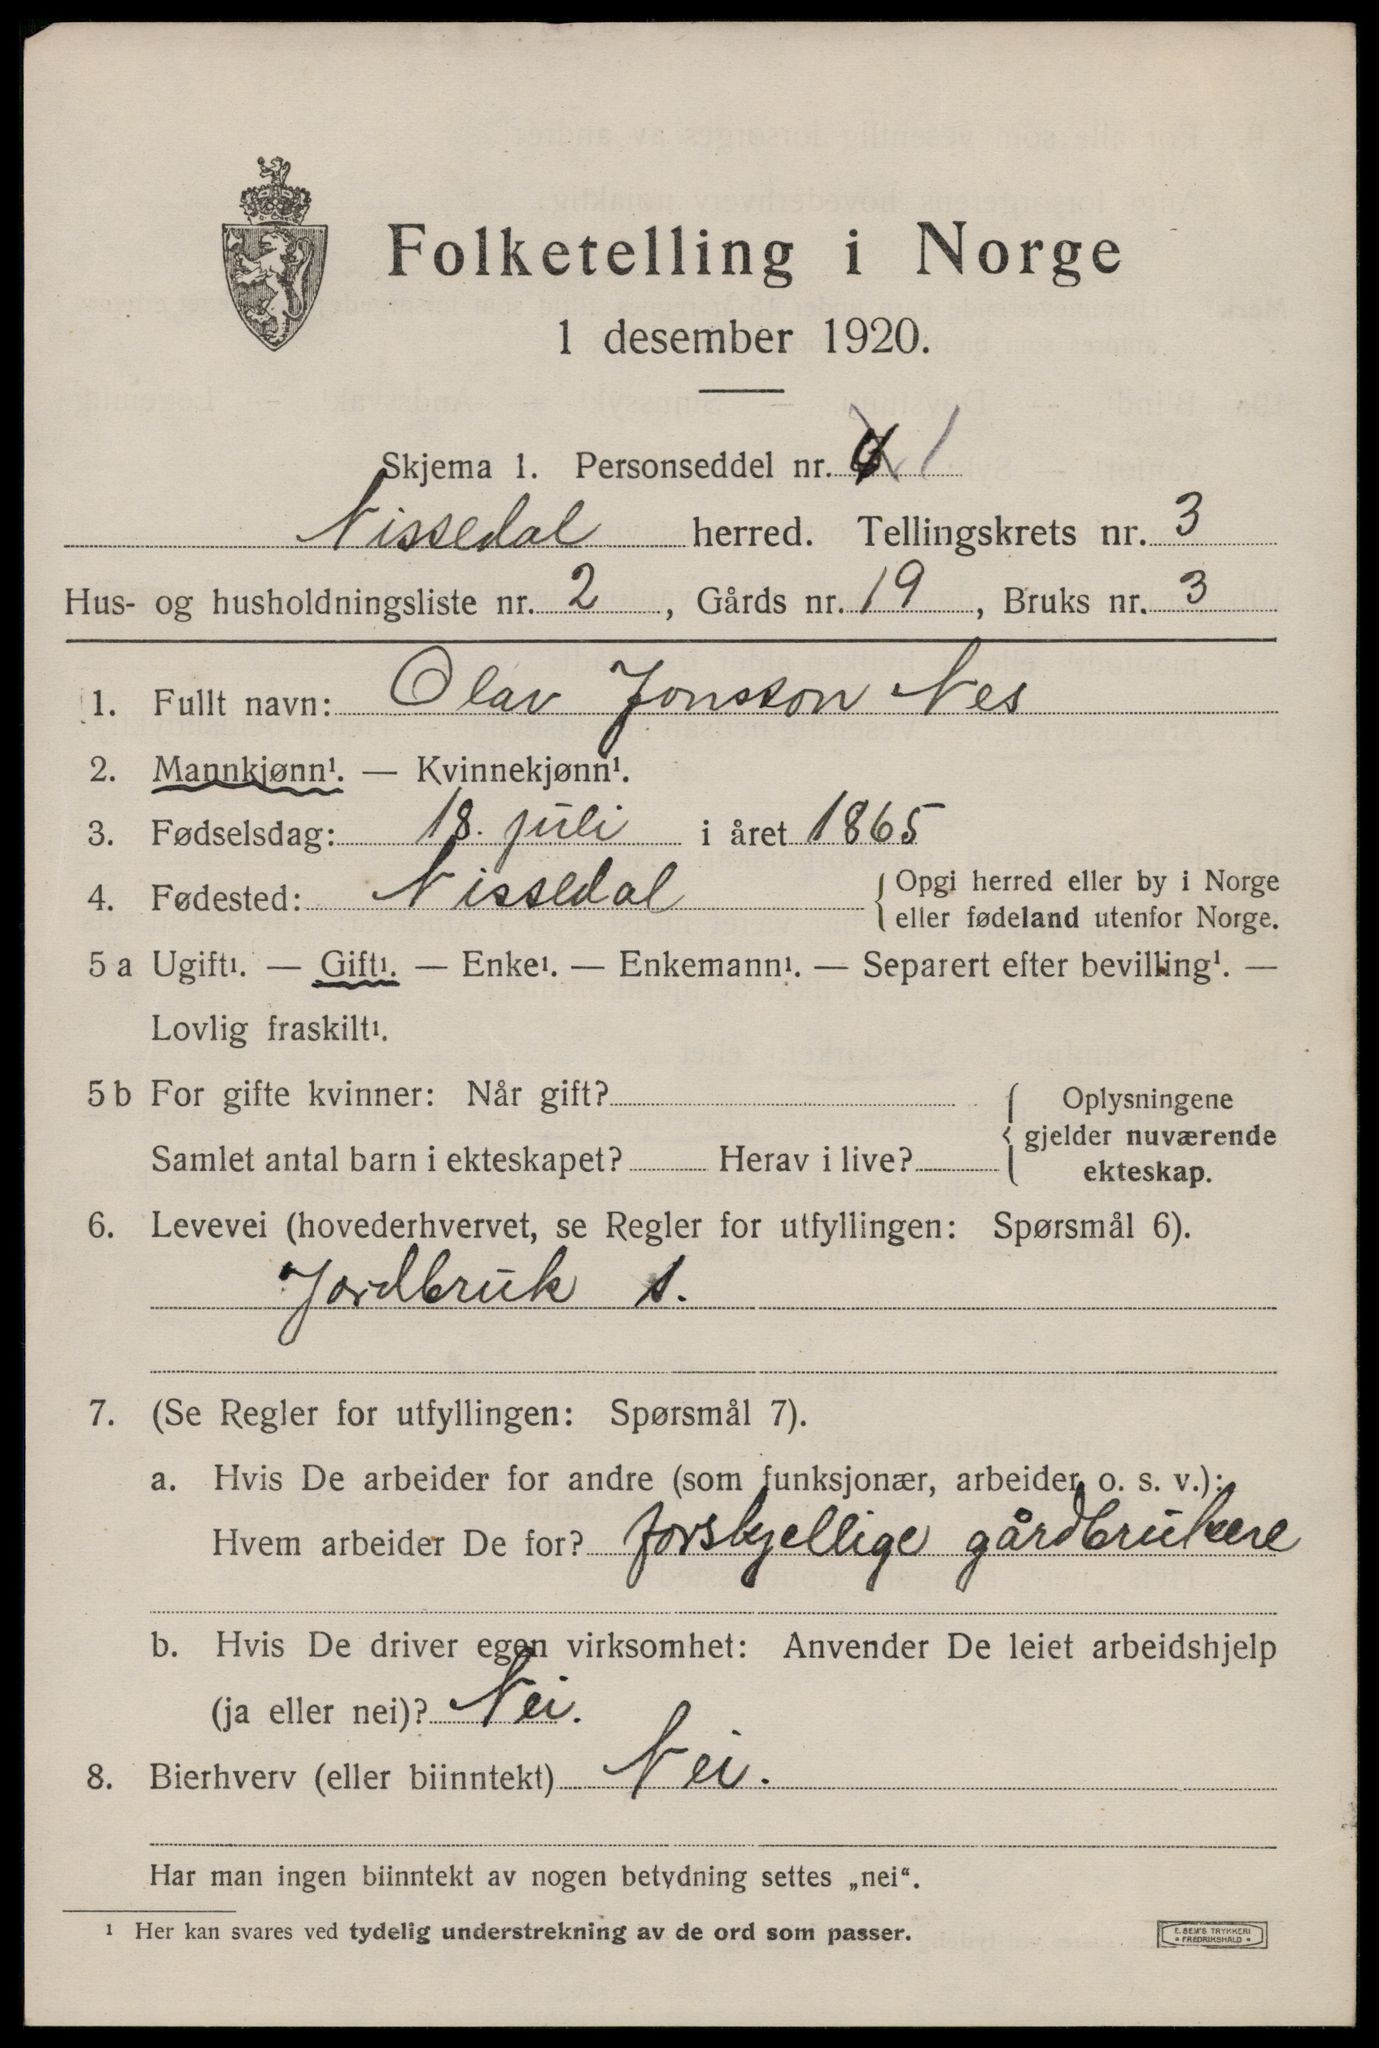 Folketelling i Norge
1 desember 1920.
Skjema 1. Personseddel nr. 1
Nissedal herred. Tellingskrets nr. 3
Hus- og husholdningsliste nr. 2, Gårds nr. 19, Bruks nr. 3
1. Fullt navn: Olav Jonsson Nes
2. Mannkjønn¹. — Kvinnekjønn¹.
3. Fødselsdag: 18. juli i året 1865
4. Fødested: Nissedal { Opgi herred eller by i Norge
eller fødeland utenfor Norge.
5 a Ugift¹. — Gift¹. — Enke¹. — Enkemann¹. — Separert efter bevilling¹. —
Lovlig fraskilt¹.
5 b For gifte kvinner: Når gift? { Oplysningene
gjelder nuværende
Samlet antal barn i ekteskapet? Herav i live? ekteskap.
6. Levevei (hovederhvervet, se Regler for utfyllingen: Spørsmål 6).
Jordbruk s.
7. (Se Regler for utfyllingen: Spørsmål 7).
a. Hvis De arbeider for andre (som funksjonær, arbeider o. s. v.):
Hvem arbeider De for? forskjellige gårdbrukere
b. Hvis De driver egen virksomhet: Anvender De leiet arbeidshjelp
(ja eller nei)? Nei.
8. Bierhverv (eller biinntekt) Nei.
Har man ingen biinntekt av nogen betydning settes „nei“.
¹ Her kan svares ved tydelig understrekning av de ord som passer.
E. SEM'S TRYKKERI
• FREDRIKSHALD •